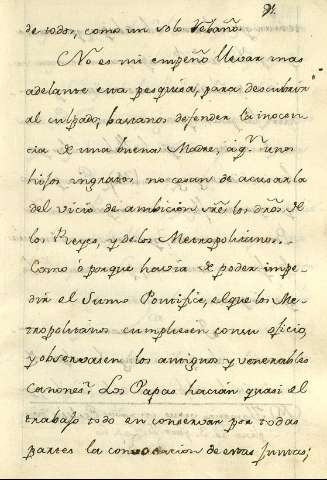 91.
de todos, como un solo Rebaño.
No es mi empeño llevar mas
adelante esta pesquisa, para descubrir
al culpado; bastanos defender la inocen
cia de una buena Madre, á qn. unos
hijos ingratos no cesan de acusarla
del vicio de ambición sre. los dros. de
los Reyes, y de los Metropolitanos.
Como ó porque havia de poder impe-
dir el Sumo Pontifice, el que los Me-
tropolitanos cumpliesen con su oficio,
y observasen los antiguos y venerables
Canones? Los Papas hacian quasi el
trabajo todo en conservar por todas
partes la convocacion de estas Juntas;